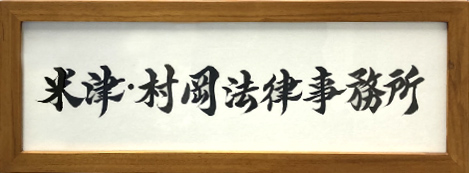 米津・村岡法律事務所